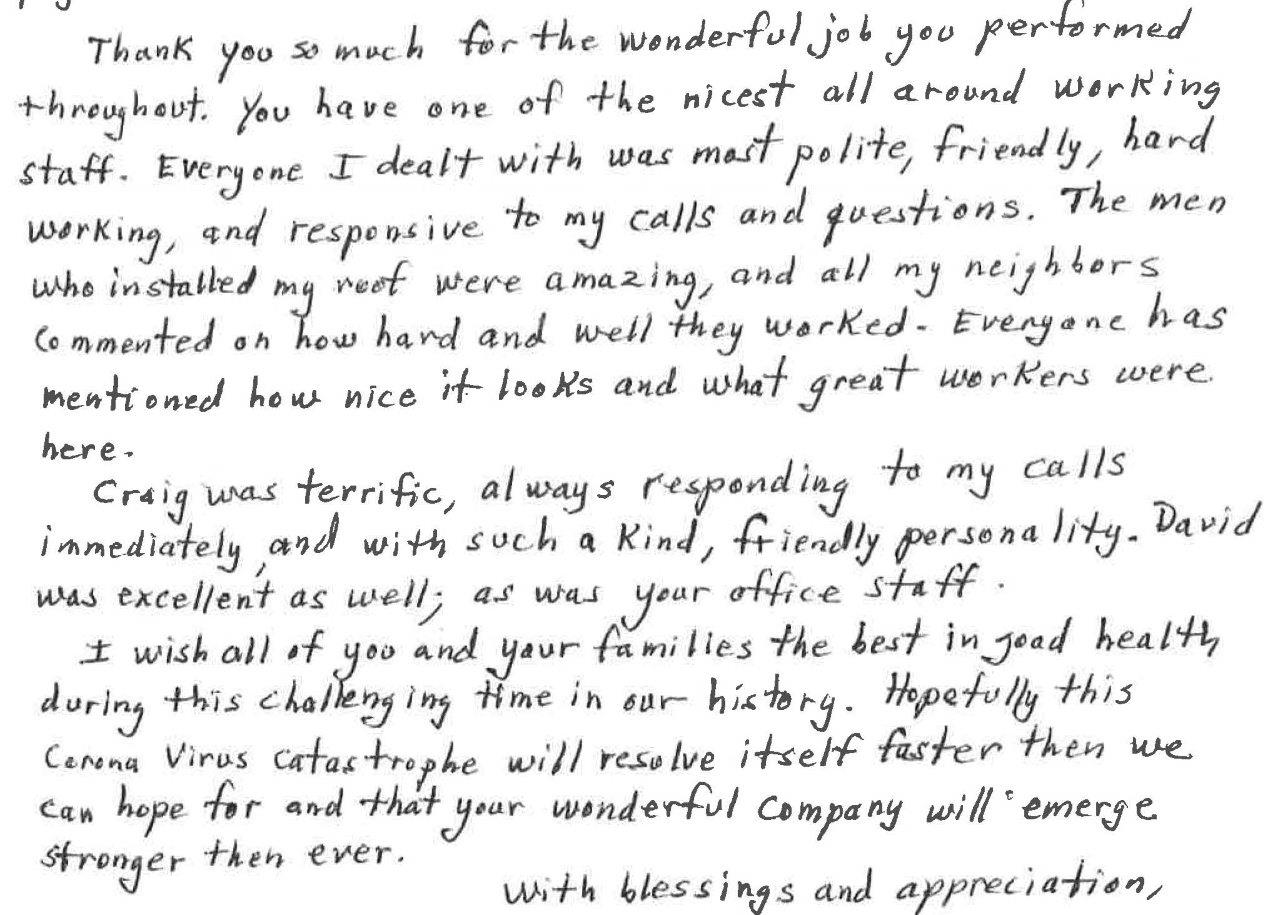 Thank you so much for the wonderful job you performed
throughout. You have one of the nicest all around working
staff. Everyone I dealt with was most polite, friendly, hard
working, and responsive to my calls and questions. The men
who installed my roof were amazing, and all my neighbors
commented on how hard and well they worked. Everyone has
mentioned how nice it looks and what great workers were
here.
Craig was terrific, always responding to my calls
immediately, and with such a kind, friendly personality. David
was excellent as well; as was your office staff.
I wish all of you and your families the best in good health
during this challenging time in our history. Hopefully this
Corona Virus catastrophe will resolve itself faster then we
can hope for and that your wonderful company will emerge
stronger then ever.
With blessings and appreciation,